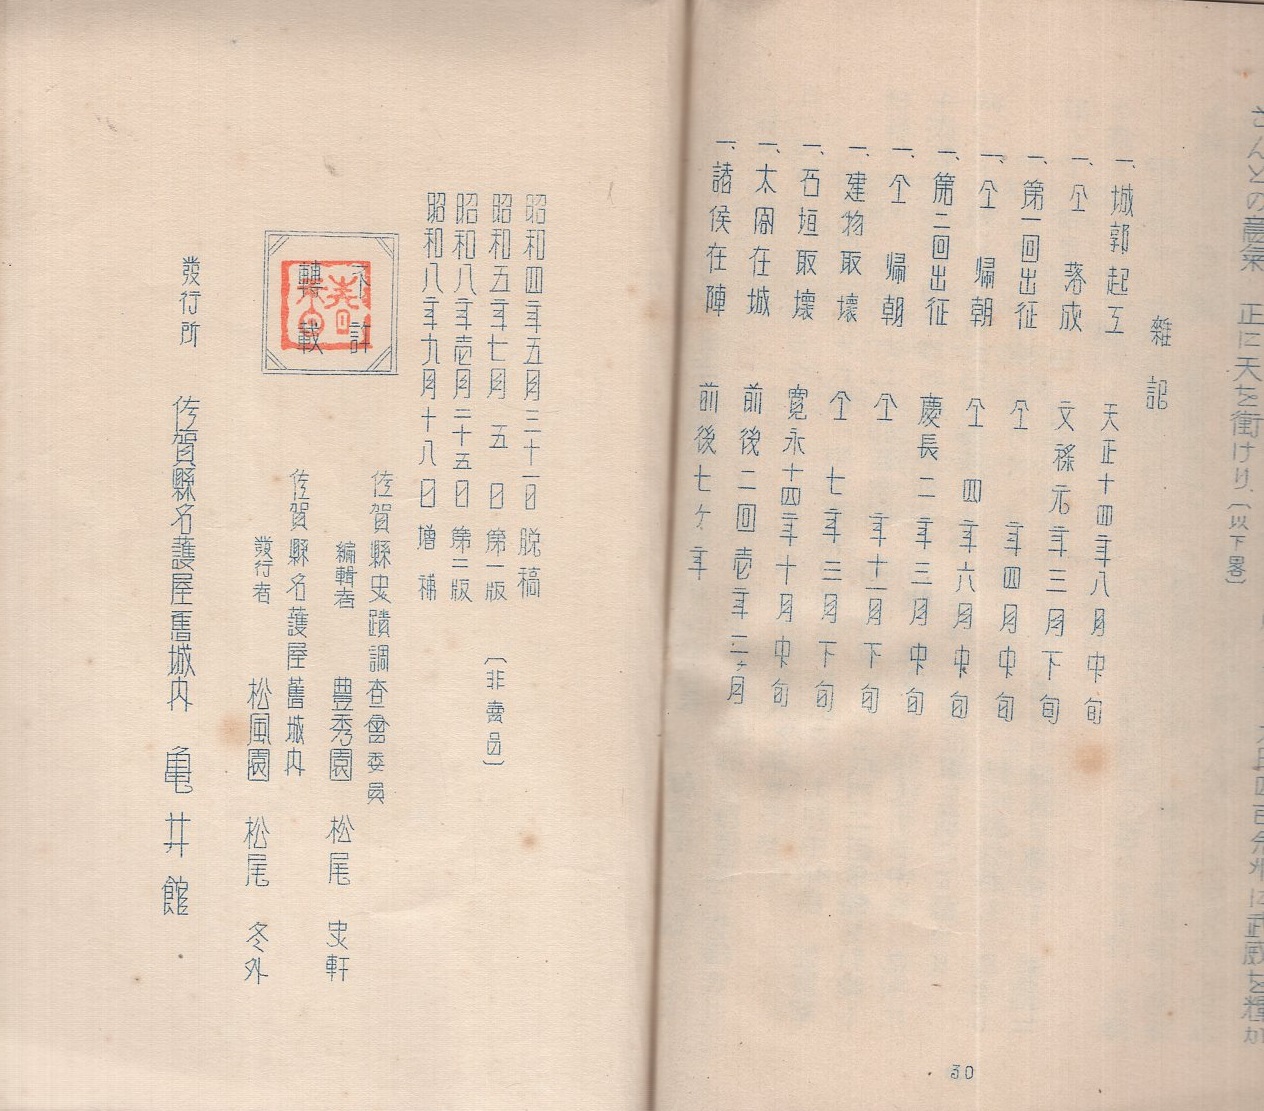 正に天を衝けり、〔以下畧〕
雜記
一、城郭起工 天正十四年八月中旬
一、仝 落成 文祿元年三月下旬
一、第一回出征 仝 年四月中旬
一、仝 歸朝 仝 四年六月中旬
一、第二回出征 慶長二年三月中旬
一、仝 歸朝 仝 年十一月下旬
一、建物取壞 仝 七年三月下旬
一、石垣取壞 寛永十四年十月中旬
一、太閤在城 前後二回壱年二ヶ月
一、諸侯在陣 前後七ヶ年
30
昭和四年五月三十一日 脱稿
昭和五年七月五日 第一版 〔非賣品〕
昭和八年壱月二十五日 第二版
昭和八年九月十八日 增補
不許
轉載
佐賀縣史蹟調査會委員
編輯者 豊秀園 松尾 史軒
佐賀縣名護屋舊城內
發行者 松風園 松尾 冬外
發行所 佐賀縣名護屋舊城內 亀井館